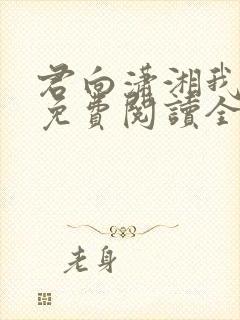 君向潇湘我
免費閱讀全
老身